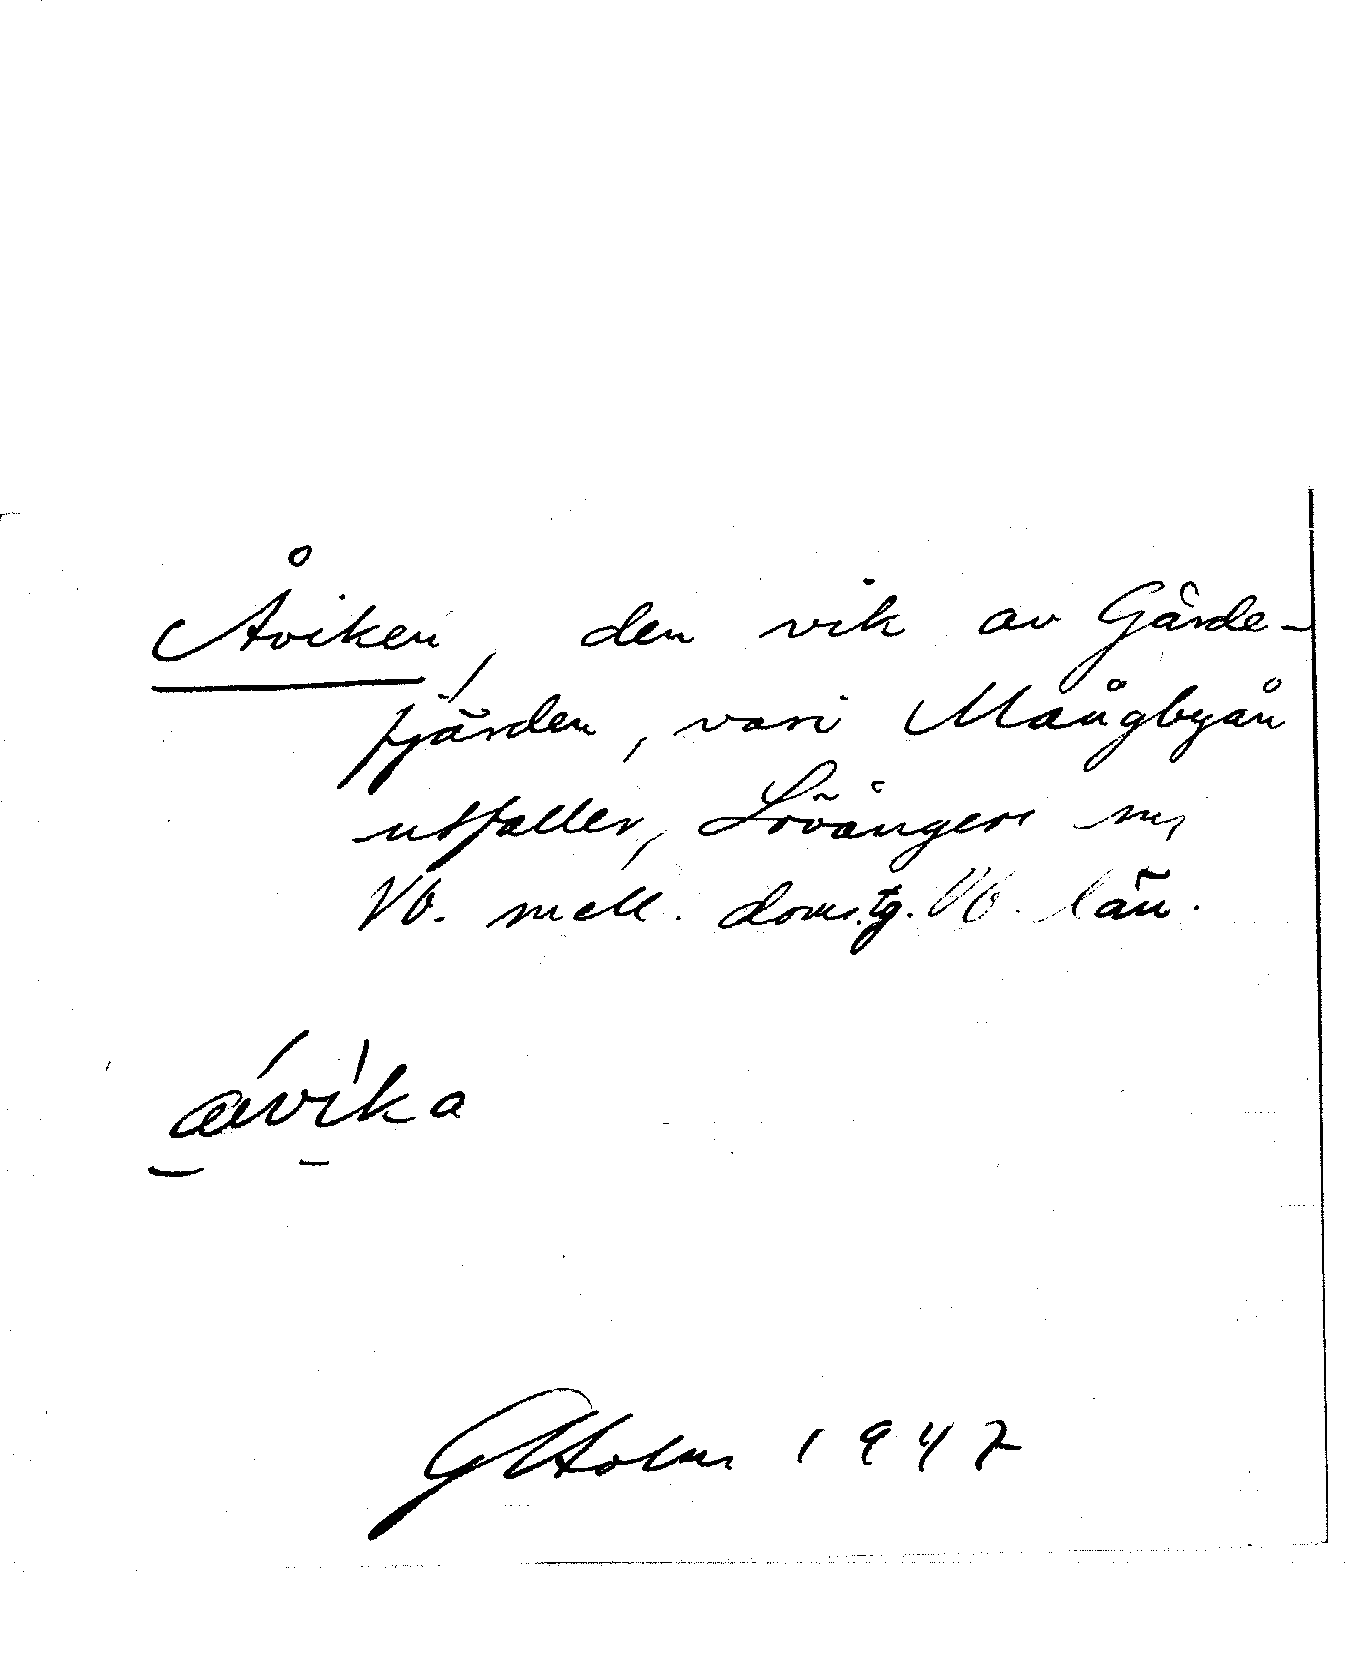 Åviken, den vik av Gärde-
fjärden, vari Mångbyån
utfaller, Lövångers sn,
Vb. mell. doms.tg. Vb. län.
åvika
GHolm 1947